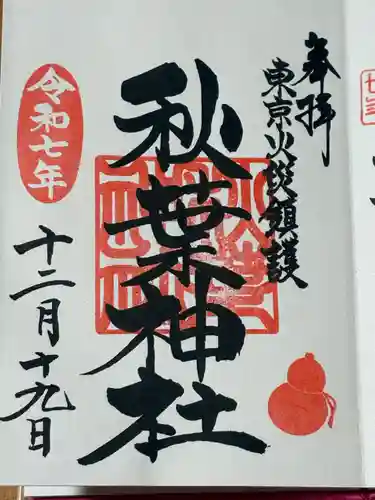 奉拝
東京火災鎮護
秋葉神社
令和七年
十二月十九日